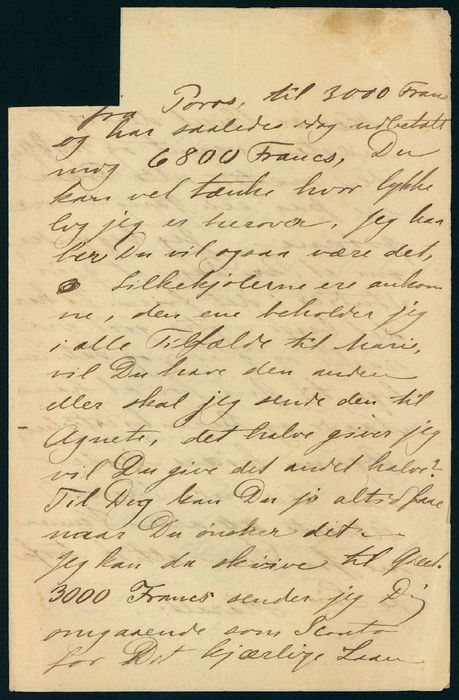 fra Poros, til 3000 Fran
og har saaledes idag udbetalt
mig 6800 Francs, Du
kan vel tænke hvor lykke
lig jeg er herover, jeg haa
ber Du vil ogsaa være det,
Silkekjolerne ere ankom
ne, den ene beholder jeg
i alle Tilfælde til Marie,
vil Du have den anden
eller skal jeg sende den til
Agnete, det halve giver jeg
vil Du give det andet halve?
Til Dig kan Du jo altid faae
naar Du ønsker det.
Jeg kan da skrive til
3000 Francs sender jeg Dig
omgaaende som Sconto
for Dit kjærlige Laan